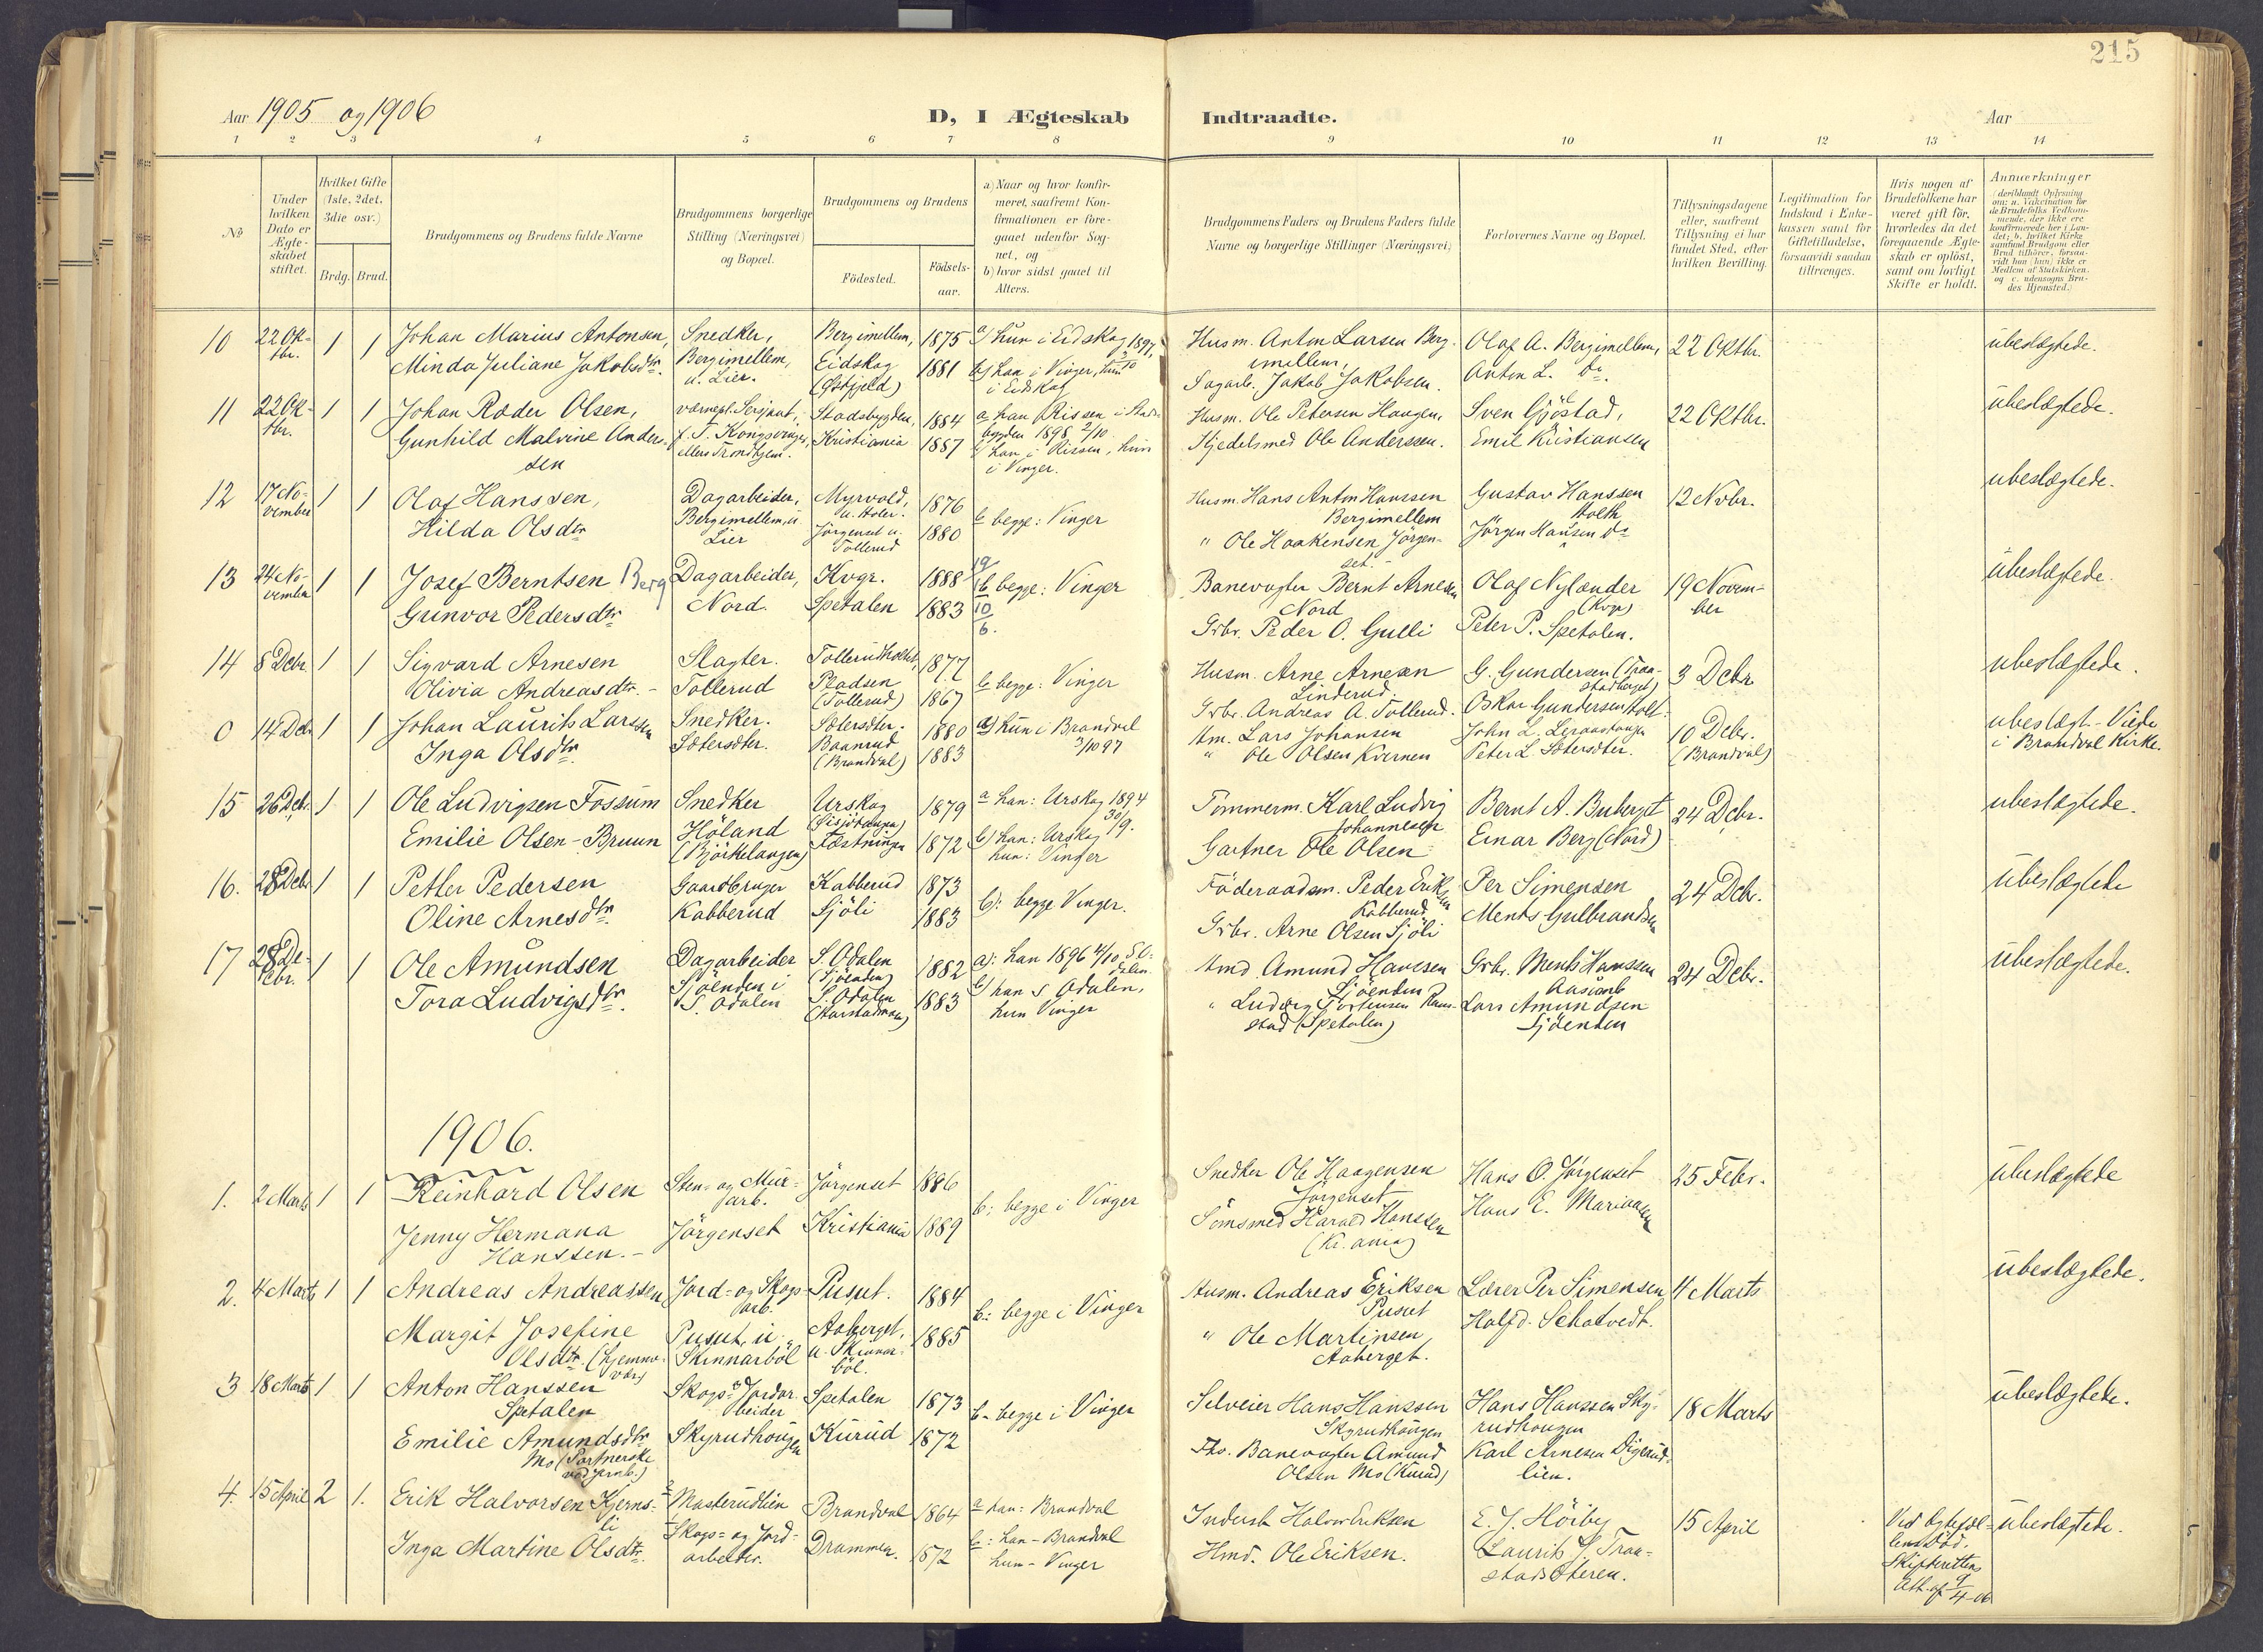 215
Aar 1905 og 1906
D, I Ægteskab Indtraadte.
Aar
1 2 3 4 5 6 7 8 9 10 11 12 13 14
№
Under hvilken Dato er Ægteskabet stiftet.
Hvilket Gifte (1ste, 2det, 3die osv.)
Brdg. Brud.
Brudgommens og Brudens fulde Navne
Brudgommens borgerlige Stilling (Næringsvei) og Bopæl.
Brudgommens og Brudens
Födested.
Födsels-aar.
a) Naar og hvor konfirmeret, saafremt Konfirmationen er foregaaet udenfor Sognet, og
b) hvor sidst gaaet til Alters.
Brudgommens Faders og Brudens Faders fulde Navne og borgerlige Stillinger (Næringsvei)
Forlovernes Navne og Bopæl.
Tillysningsdagene eller, saafremt Tillysning ei har fundet Sted, efter hvilken Bevilling.
Legitimation for Indskud i Enkekassen samt for Giftetilladelse, forsaavidt saadan tiltrænges.
Hvis nogen af Brudefolkene har været gift för, hvorledes da det foregaaende Ægteskab er oplöst, samt om lovligt Skifte er holdt.
Anmærkninger (deriblandt Oplysning om: a. Vakcination for de Brudefolks Vedkommende, der ikke ere konfirmerede her i Landet; b. hvilket Kirkesamfund Brudgom eller Brud tilhörer, forsaavidt han (hun) ikke er Medlem af Statskirken, og c. udensogns Brudes Hjemsted.)
10 22 Oktbr. 1 1 Johan Marius Antonsen, Snedker, Bergimellem, 1875 a) hun i Eidskog 1897,
Minda Juliane Jakobsdtr. Bergimellem, u. Lier. Eidskog 1881 b) han i Vinger, hun i Eidskog
Husm. Anton Larsen Bergimellem, Olaf A. Bergimellem, 22 Oktbr. ubeslægtede.
Sagarb. Jakob Jakobsen. Anton L. Do.
11 22 Oktbr. 1 1 Johan Ræder Olsen, værnepl. Sersjant, Stadsbygden, 1884 a han Rissen i Stadsbygden 1898 2/10
Gunhild Malvine Anderssen f. T. Kongsvinger, ellers Trondhjem. Kristiania 1887 b han i Rissen, hun i Vinger.
Husm. Ole Petersen Haugen, Sven Gjöstad, 22 Oktbr. ubeslægtede.
Kjedelsmed Ole Anderssen. Emil Kristiansen
12 17 November 1 1 Olaf Hanssen, Dagarbeider, Myrvold, 1876
Hilda Olsdtr Bergimellem, u. Lier Jörgenset u. Tollerud 1880 b begge: Vinger
Husm. Hans Anton Hanssen Bergimellem Gustav Hanssen Holth 12 Novbr. ubeslægtede.
" Ole Haakensen Jörgenset. Jörgen Hansen Do
13 24 November 1 1 Josef Berntsen Berg Dagarbeider, Kvgr. 1888 b begge: Vinger
Gunvor Pedersdtr Nord. Spetalen 1883
Banevogter Bernt Arnesen Nord Olaf Nylænder (Kvgr) 19 November ubeslægtede.
Grbr. Peder O. Gulli Peter P. Spetalen.
14 8 Debr. 1 1 Sigvard Arnesen Slagter. Tollerudholtet 1877
Olivia Andreasdtr. - Tollerud Pladsen (Tollerud) 1867 b begge: Vinger
Husm. Arne Arnesen Linderud. G. Gundersen 3 Debr ubeslægtede.
Grbr. Andreas A. Tollerud. Oskar Gundersen Holt.
0 14 Debr 1 1 Johan Laurits Larssen Snedker. Sætersdter. 1880 a) hun i Brandval 3/10 97
Inga Olsdtr. Sætersdter. Baanrud (Brandval) 1883
Hm. Lars Johansen John L. 10 Debr. (Brandval) ubeslægt. - Viede i Brandval Kirke.
" Ole Olsen Kvernen Peter L. Sætersdter.
15 26 Debr. 1 1 Ole Ludvigsen Fossum Snedker Urskog 1879 a han: Urskog 1894 30/9.
Emilie Olsen-Bruun Höland (Björkelangen) Fæstningen 1872 b) han: Urskog hun: Vinger
Tömmerm. Karl Ludvig Johannesen Bernt A. Buberget 24 Debr. ubeslægtede.
Gartner Ole Olsen Einar Berg (Nord)
16. 28 Debr 1 1 Petter Pedersen Gaardbruger Kabberud 1873
Oline Arnesdtr Kabberud Sjöli 1883 b): begge Vinger.
Föderaadsm. Peder Eriksen Kabberud Per Simensen 24 Debr. ubeslægtede
Grbr. Arne Olsen Sjöli Ments Gulbrandsen
17 28 Debr. 1 1 Ole Amundsen Dagarbeider S. Odalen (Sjöenden) 1882 a): han 1896 4/10 S. Odalen.
Tora Ludvigsdtr. Sjöenden i S. Odalen S. Odalen 1883 b) han S Odalen, hun Vinger
Hmd Amund Hansen Sjöenden Grbr. Ments Hanssen 24 Debr. ubeslægtede.
" Ludvig Torstensen (Spetalen) Lars Amundsen Sjöenden
1906.
1. 2 Marts 1 1 Reinhard Olsen Sten- og Murarb. Jörgenset 1886
Jenny Hermana Hanssen. - Jörgenset Kristiania 1889 b: begge i Vinger
Snedker Ole Haagensen Jörgenset Hans O. Jörgenset 25 Febr. ubeslægtede
Sömsmed Harald Hanssen (Kr.ania) Hans E.
2. 4 Marts 1 1 Andreas Andreassen Jord- og Skogsarb. Pusut. 1884
Margit Josefine Olsdtr. Pusut, u. Skinnarböl Aaberget, u. Skinnarböl. 1885 b: begge i Vinger
Husm. Andreas Eriksen Pusut Lærer Per Simensen 4 Marts ubeslægtede.
" Ole Martinsen Aaberget. Halfd. Schøtvedt.
3 18 Marts 1 1 Anton Hanssen Spetalen Skogs- og Jordarbeider Spetalen 1873
Emilie Amundsdtr Mo Skyrudhougen Kurud 1872 b- begge i Vinger
Selveier Hans Hanssen Skyrudhougen Hans Hanssen Skyrudhougen 18 Marts ubeslægtede.
Fhv. Banevogter Amund Olsen Mo (Kurud) Karl Arnesen Digerudlien.
4. 15 April 2 1. Erik Halvorsen Kjernsli Masterudlien Brandval 1864 a han: Brandval
Inga Martine Olsdtr. Skogs- og Jordarbeider. Drammen. 1872 b: han - Brandval hun - Vinger
Inderst Halvor Eriksen E. J. Höiby 15 April Ved Ægtefællens Død. Skifterettens Att. af 9/4 06 ubeslægtede.
Hmd. Ole Eriksen. Laurits